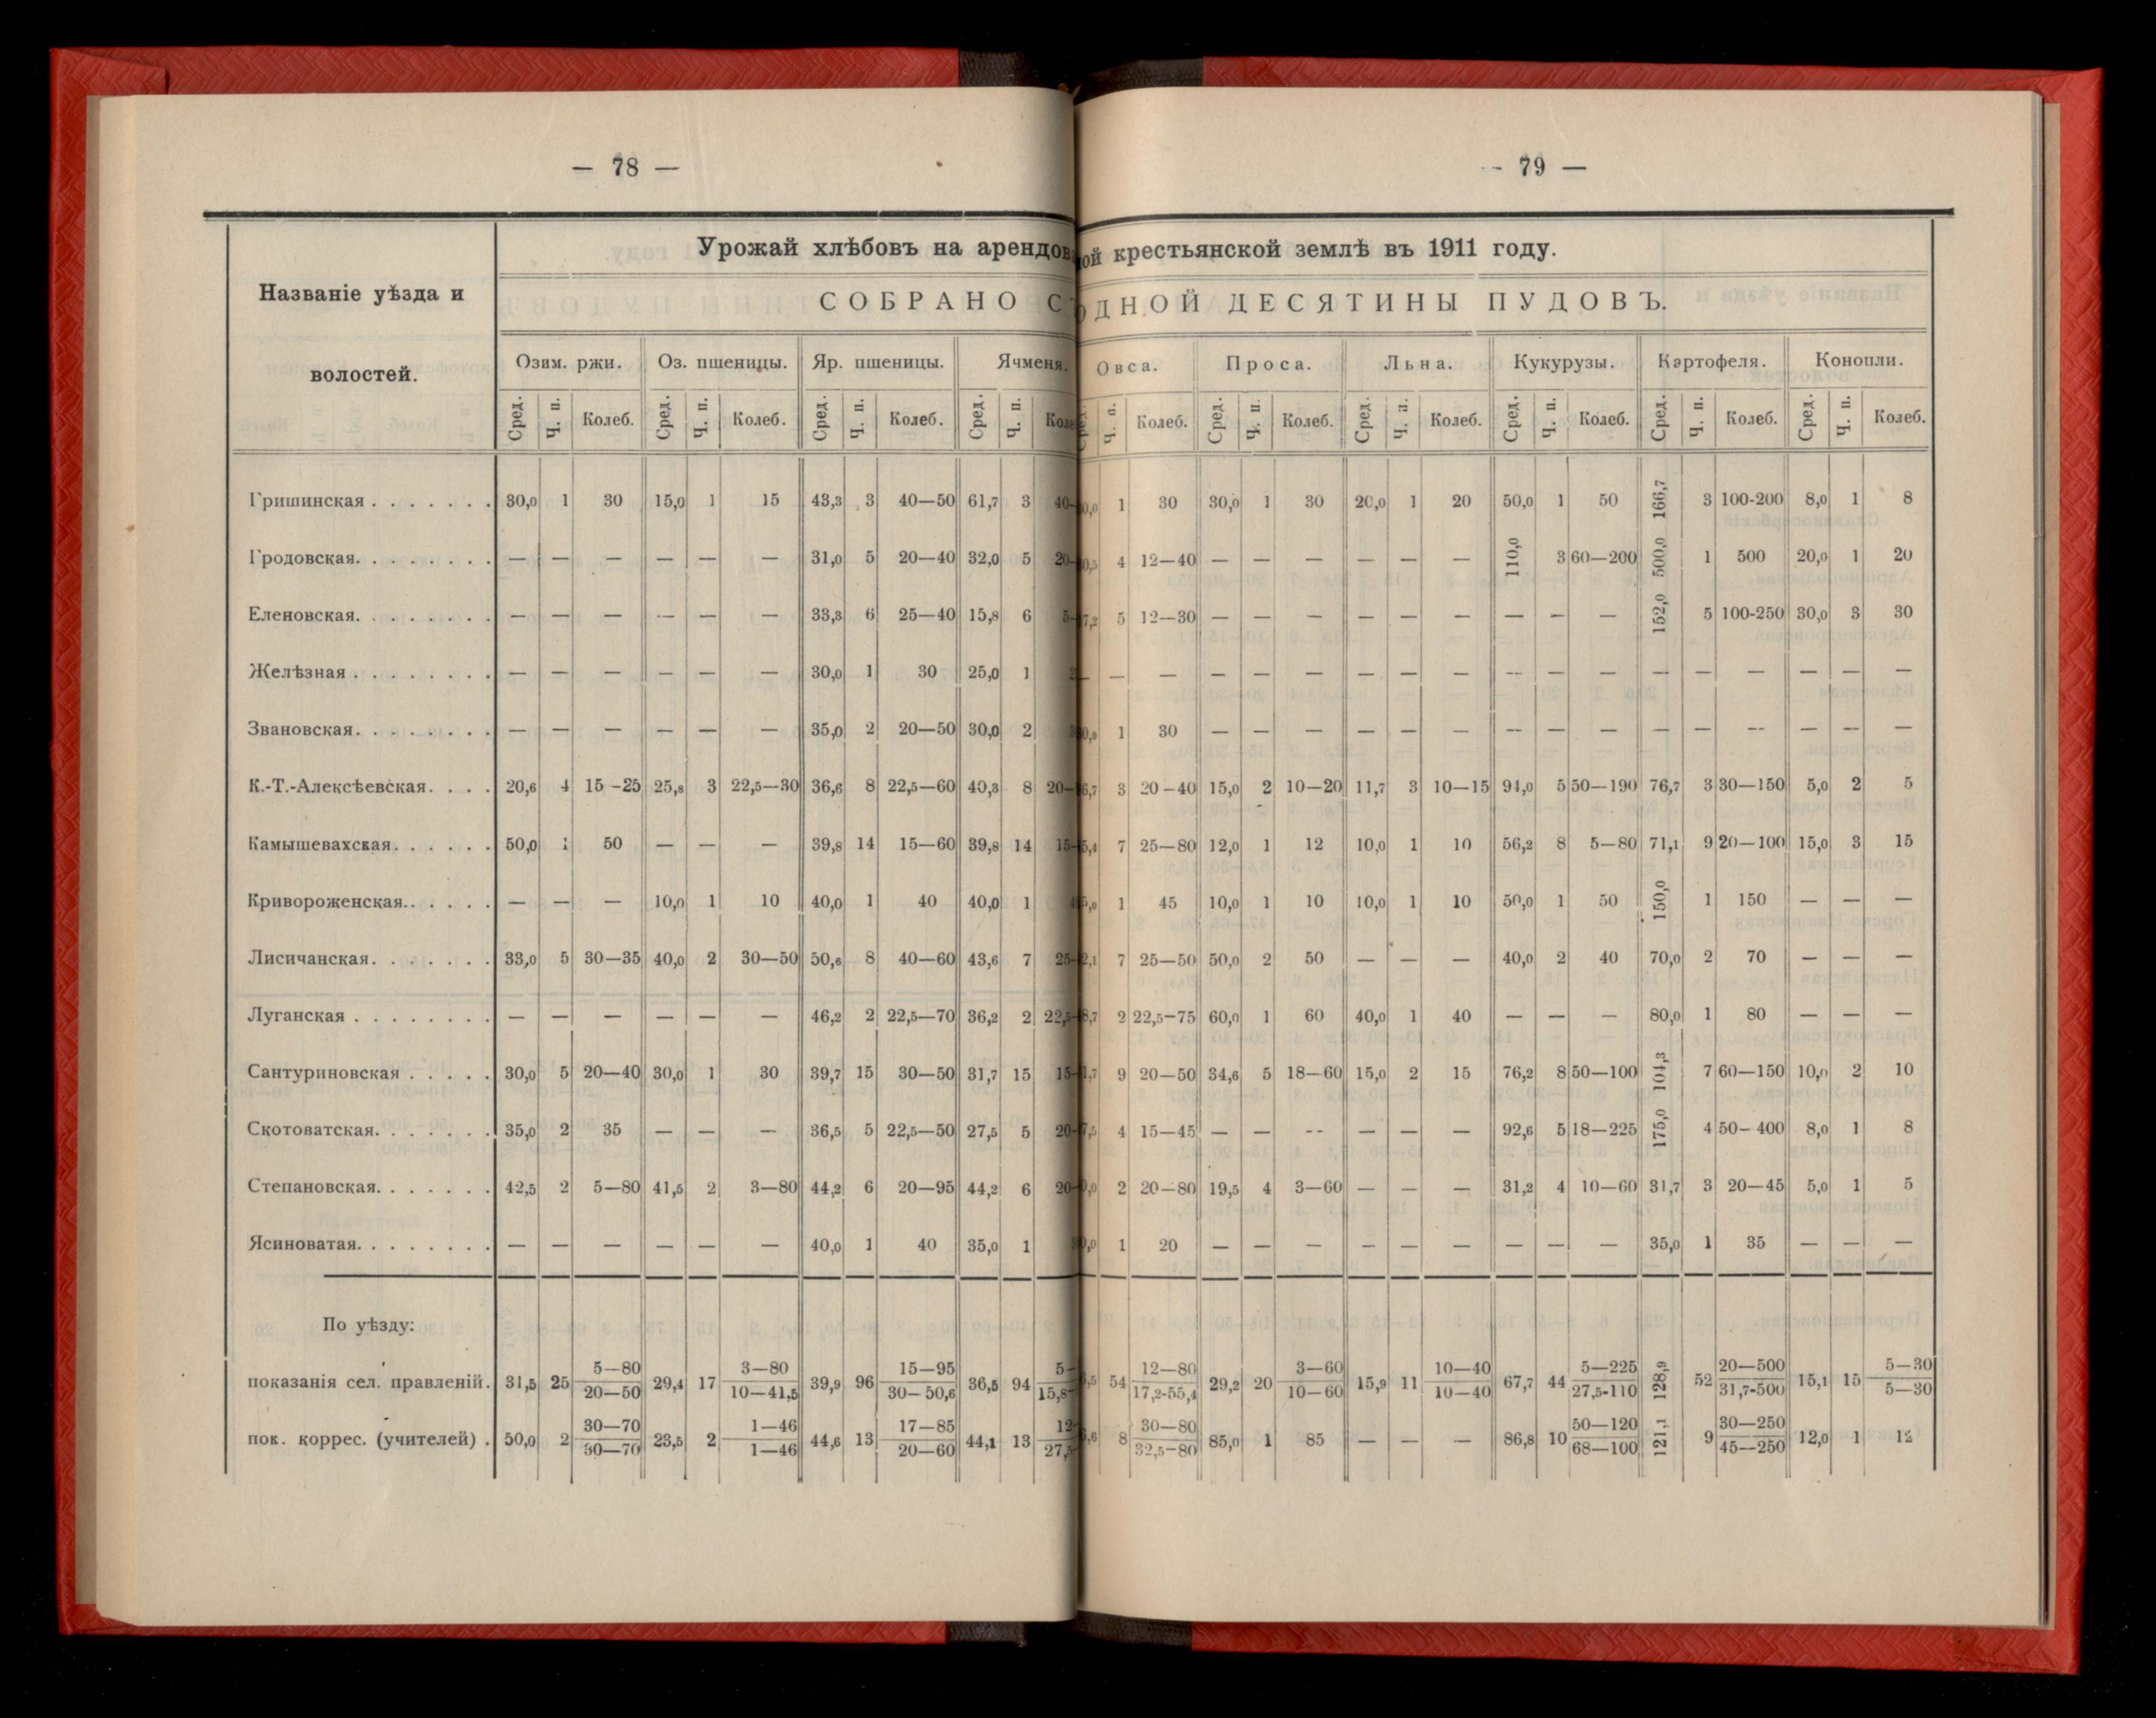 — 78 —
- 79 —
Урожай хлѣбовъ на арендов ой крестьянской землѣ въ 1911 году.
Названіе уѣзда и
волостей.
СОБРАНО С ОДНОЙ ДЕСЯТИНЫ ПУДОВЪ.
Озим. ржи. Оз. пшеницы. Яр. пшеницы. Ячменя. Овса. Проса. Льна. Кукурузы. Картофеля. Конопли.
Сред. Ч. п. Колеб. Сред. Ч. п. Колеб. Сред. Ч. п. Колеб. Сред. Ч. п. Ч. п. Колеб. Сред. Ч. п. Колеб. Сред. Ч. п. Колеб. Сред. Ч. п. Колеб. Сред. Ч. п. Колеб. Сред. Ч. п. Колеб.
Гришинская . . . . . . . 30,0 1 30 15,0 1 15 43,3 3 40—50 61,7 3 40- 1 30 30,0 1 30 20,0 1 20 50,0 1 50 166,7 3 100-200 8,0 1 8
Гродовская. . . . . . . . — — — — — — 31,0 5 20—40 32,0 5 20- 4 12—40 — — — — — — 110,0 3 60—200 500,0 1 500 20,0 1 20
Еленовская. . . . . . . . — — — — — — 33,3 6 25—40 15,8 6 5- 5 12—30 — — — — — — — — — 152,0 5 100-250 30,0 3 30
Желѣзная . . . . . . . . — — — — — — 30,0 1 30 25,0 1 — — — — — — — — — — — — — — — — — —
Звановская. . . . . . . . — — — — — — 35,0 2 20—50 30,0 2 1 30 — — — — — — — — — — — — — — —
К.-Т.-Алексѣевская. . . . 20,6 4 15—25 25,8 3 22,5—30 36,6 8 22,5—60 40,3 8 20- 3 20—40 15,0 2 10—20 11,7 3 10—15 94,0 5 50—190 76,7 3 30—150 5,0 2 5
Камышевахская. . . . . . 50,0 1 50 — — — 39,8 14 15—60 39,8 14 15- 7 25—80 12,0 1 12 10,0 1 10 56,2 8 5—80 71,1 9 20—100 15,0 3 15
Кривороженская.. . . . . — — — 10,0 1 10 40,0 1 40 40,0 1 1 45 10,0 1 10 10,0 1 10 50,0 1 50 150,0 1 150 — — —
Лисичанская. . . . . . . 33,0 5 30—35 40,0 2 30—50 50,6 8 40—60 43,6 7 25- 7 25—50 50,0 2 50 — — — 40,0 2 40 70,0 2 70 — — —
Луганская . . . . . . . . — — — — — — 46,2 2 22,5—70 36,2 2 22,5- 2 22,5—75 60,0 1 60 40,0 1 40 — — — 80,0 1 80 — — —
Сантуриновская . . . . . 30,0 5 20—40 30,0 1 30 39,7 15 30—50 31,7 15 15- 9 20—50 34,6 5 18—60 15,0 2 15 76,2 8 50—100 104,3 7 60—150 10,0 2 10
Скотоватская. . . . . . . 35,0 2 35 — — — 36,5 5 22,5—50 27,5 5 20- 4 15—45 — — — — — — 92,6 5 18—225 175,0 4 50—400 8,0 1 8
Степановская. . . . . . . 42,5 2 5—80 41,5 2 3—80 44,2 6 20—95 44,2 6 20- 2 20—80 19,5 4 3—60 — — — 31,2 4 10—60 31,7 3 20—45 5,0 1 5
Ясиноватая. . . . . . . . — — — — — — 40,0 1 40 35,0 1 1 20 — — — — — — — — — 35,0 1 35 — — —
По уѣзду:
5—80 3—80 15—95 5- 12—80 3—60 10—40 5—225 20—500 5—30
показанія сел. правленій. 31,5 25 29,4 17 39,9 96 36,5 94 54 29,2 20 15,9 11 67,7 44 128,9 52 15,1 15
20—50 10—41,5 30—50,6 15,8- 17,2-55,4 10—60 10—40 27,5-110 31,7-500 5—30
30—70 1—46 17—85 12- 30—80 50—120 30—250
пок. коррес. (учителей) . 50,0 2 23,5 2 44,6 13 44,1 13 8 85,0 1 85 — — — 86,8 10 121,1 9 12,0 1 12
30—70 1—46 20—60 27,5 32,5—80 68—100 45—250